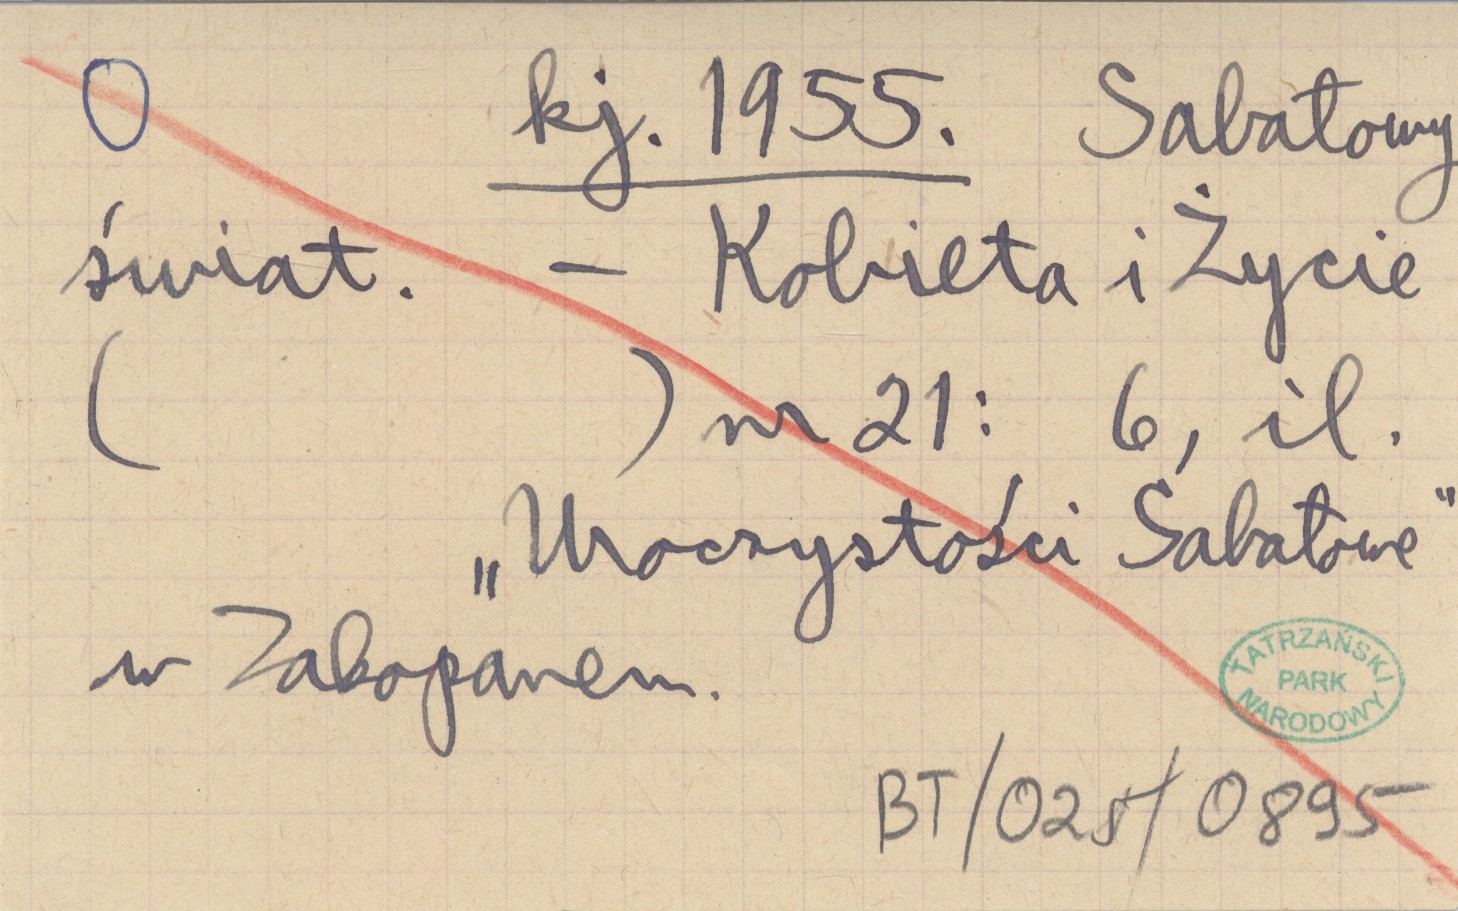 O kj. 1955. Sabałowy
świat. – Kobieta i Życie
( ) nr 21: 6, il.
„Uroczystości Sabałowe"
w Zakopanem.
TATRZAŃSKI
PARK
NARODOWY
BT/025/0895